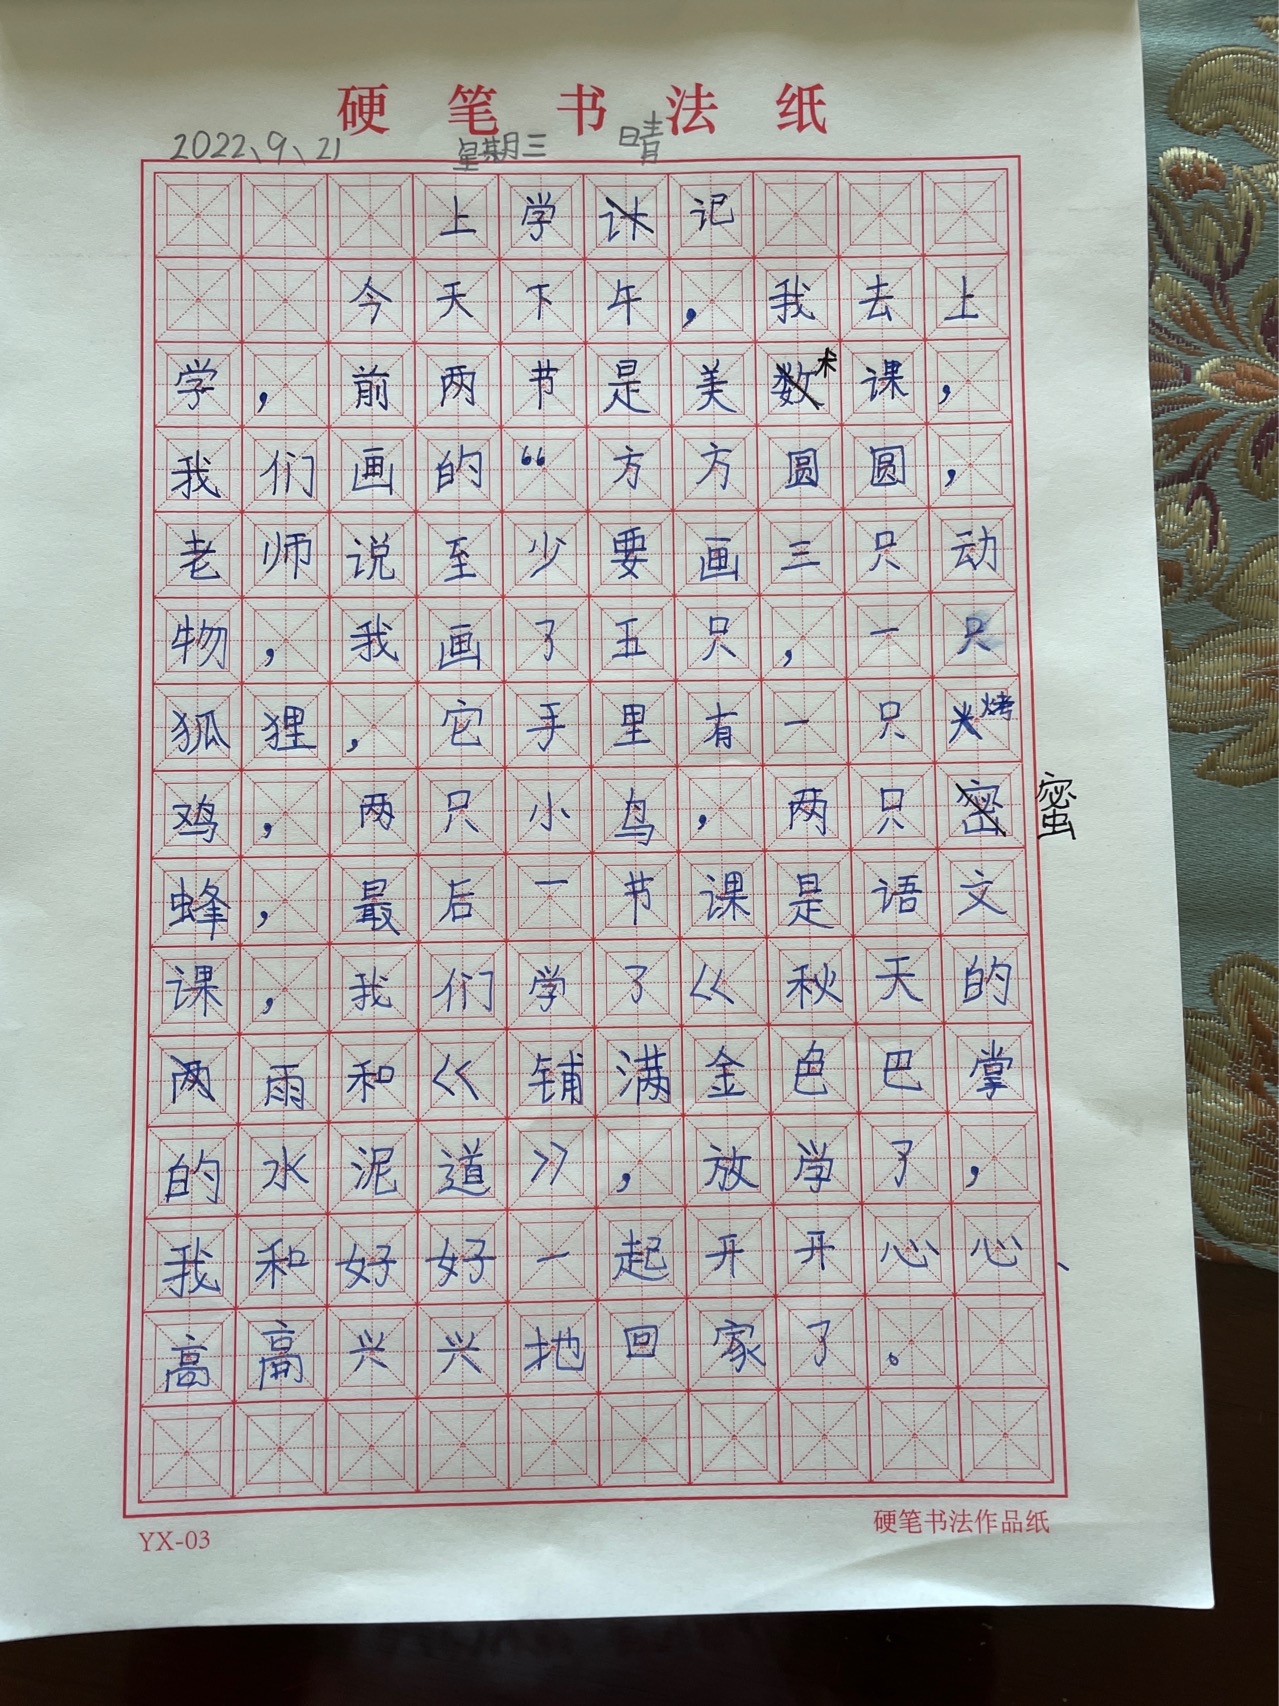 硬笔书法纸
2022、9、21 星期三 晴
上学记
今天下午，我去上
学，前两节是美术课，
我们画的“方方圆圆，
老师说至少要画三只动
物，我画了五只，一只
狐狸，它手里有一只烤
鸡，两只小鸟，两只蜜
蜂，最后一节课是语文
课，我们学了《秋天的
雨和《铺满金色巴掌
的水泥道》，放学了，
我和好好一起开开心心、
高高兴兴地回家了。
YX-03 硬笔书法作品纸